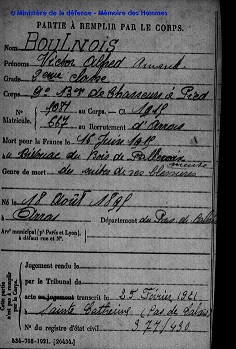 © Ministère de la défense - Mémoire des Hommes
PARTIE À REMPLIR PAR LE CORPS.
Nom BOULNOIS
Prénoms Victor Alfred Armand
Grade 2eme classe
Corps 9e Bon de Chasseurs à Pied
N° 1081 au Corps. — Cl 1915
Matricule. 667 au Recrutement d'Arras
Mort pour la France le 16 juin 1915
du Bois de
Genre de mort des suites de ses blessures
Né le 18 Août 1895
à Arras Département du Pas de Calais
Arrt municipal (pr Paris et Lyon), à défaut rue et N°.
Cette partie n'est pas à remplir par le Corps.
Jugement rendu le
par le Tribunal de
acte ou jugement transcrit le 25 Février 1921
à Sainte Catherine (Pas de Calais)
N° du registre d'état civil 977/430
534-708-1921. [26434.]